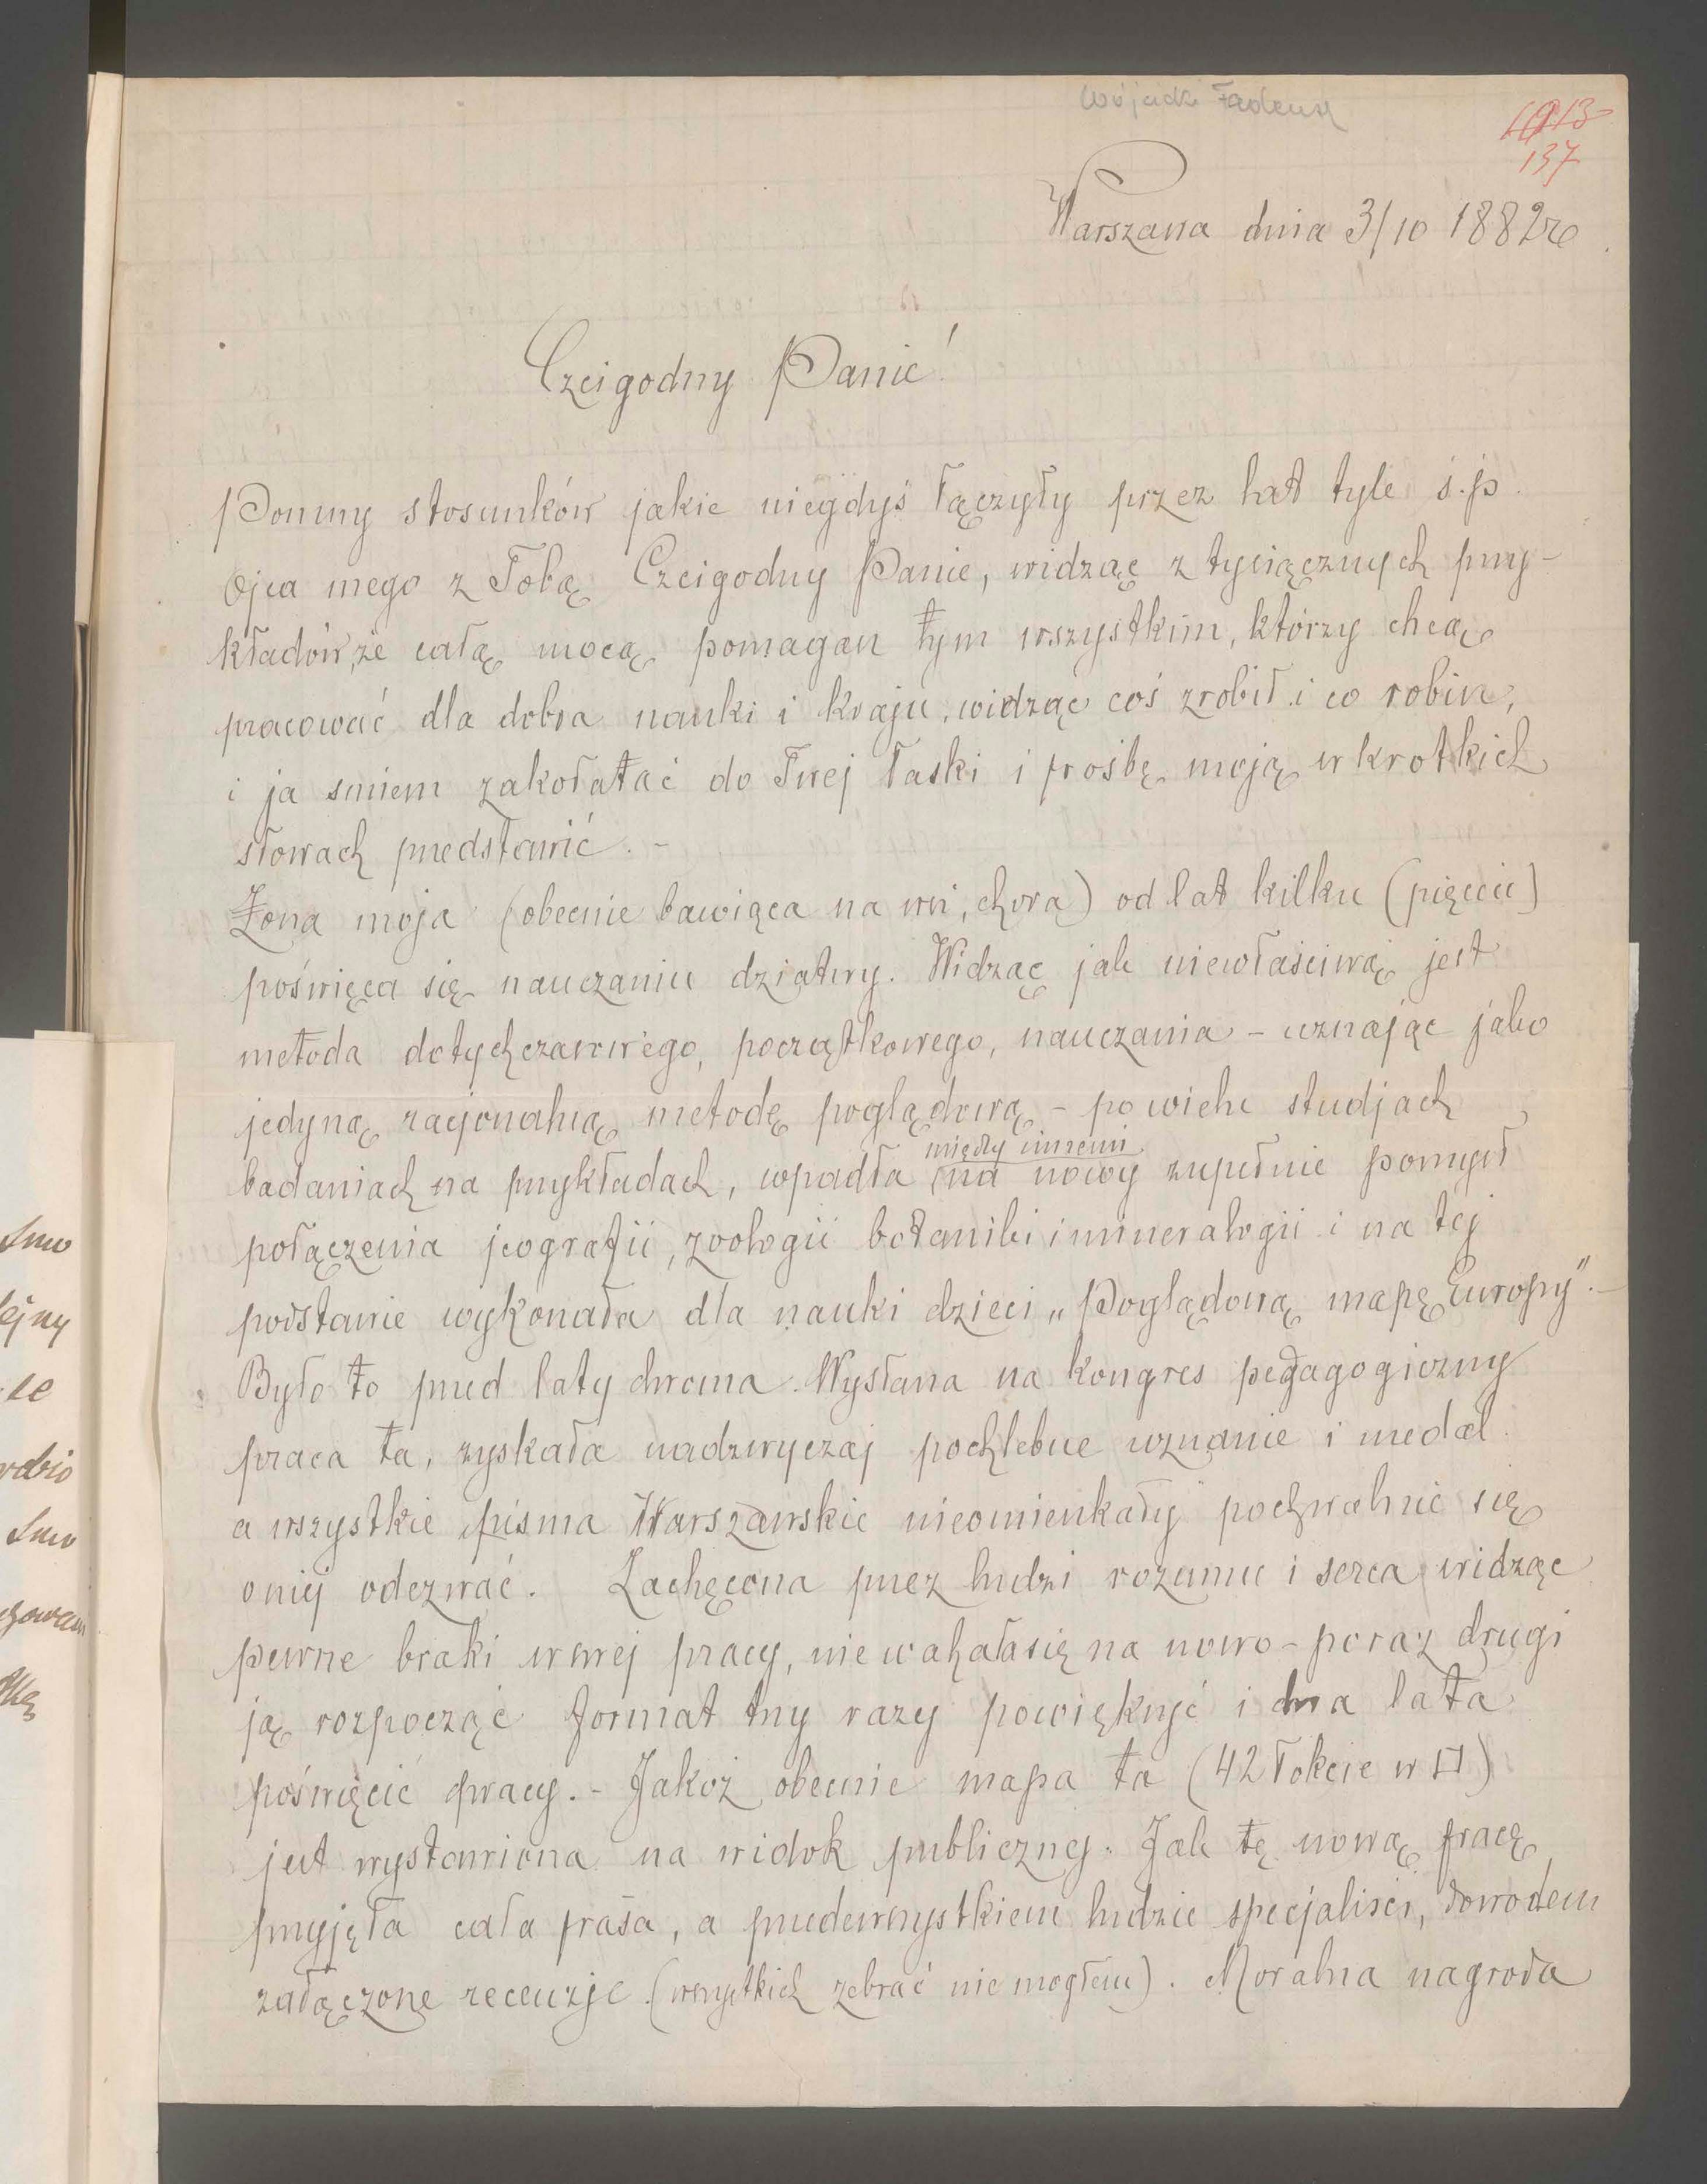 Wójcicki Tadeusz
137
Warszawa dnia 3/10 1882 r
Czcigodny Panie!
Pomny stosunków jakie niegdyś łączyły przez lat tyle ś.p.
Ojca mego z Tobą Czcigodny Panie, widząc z tysiącznych przy-
kładów, że całą mocą pomagasz tym wszystkim, którzy chcą
pracować dla dobra nauki i kraju, widząc coś zrobił i co robisz,
i ja smiem zakołatać do Twej łaski i prośbę moją w krotkich
słowach przedstawić. -
Żona moja (obecnie bawiąca na wsi, chora) od lat kilku (pięciu)
poświęca się nauczaniu dziatwy. Widząc jak niewłaściwą jest
metoda dotychczasowego, początkowego, nauczania - uznając jako
jedyną racjonalną metodę poglądową - po wielu studjach
między innemi
badaniach na przykładach, wpadła na nowy zupełnie pomysł
połączenia jeografii, zoologii botaniki i mineralogii i na tej
podstawie wykonała dla nauki dzieci „Poglądową mapę Europy". -
Było to przed laty dwoma. Wysłana na kongres pedagogiczny
praca ta, zyskała nadzwyczaj pochlebne uznanie i medal
a wszystkie pisma Warszawskie nieomieszkały pochwalnie się
o niej odezwać. Zachęcona przez ludzi rozumu i serca widząc
pewne braki w swej pracy, nie wahała się na nowo - po raz drugi
ją rozpocząć format trzy razy powiększyć i dwa lata
poświęcić pracy. - Jakoż obecnie mapa ta (42 łokcie w □)
jest wystawiona na widok publiczny. Jak tę nową pracę
przyjęła cała prasa, a przedewszystkiem ludzie specjaliści, dowodem
załączone recenzje (wszystkich zebrać nie mogłem). Moralna nagroda